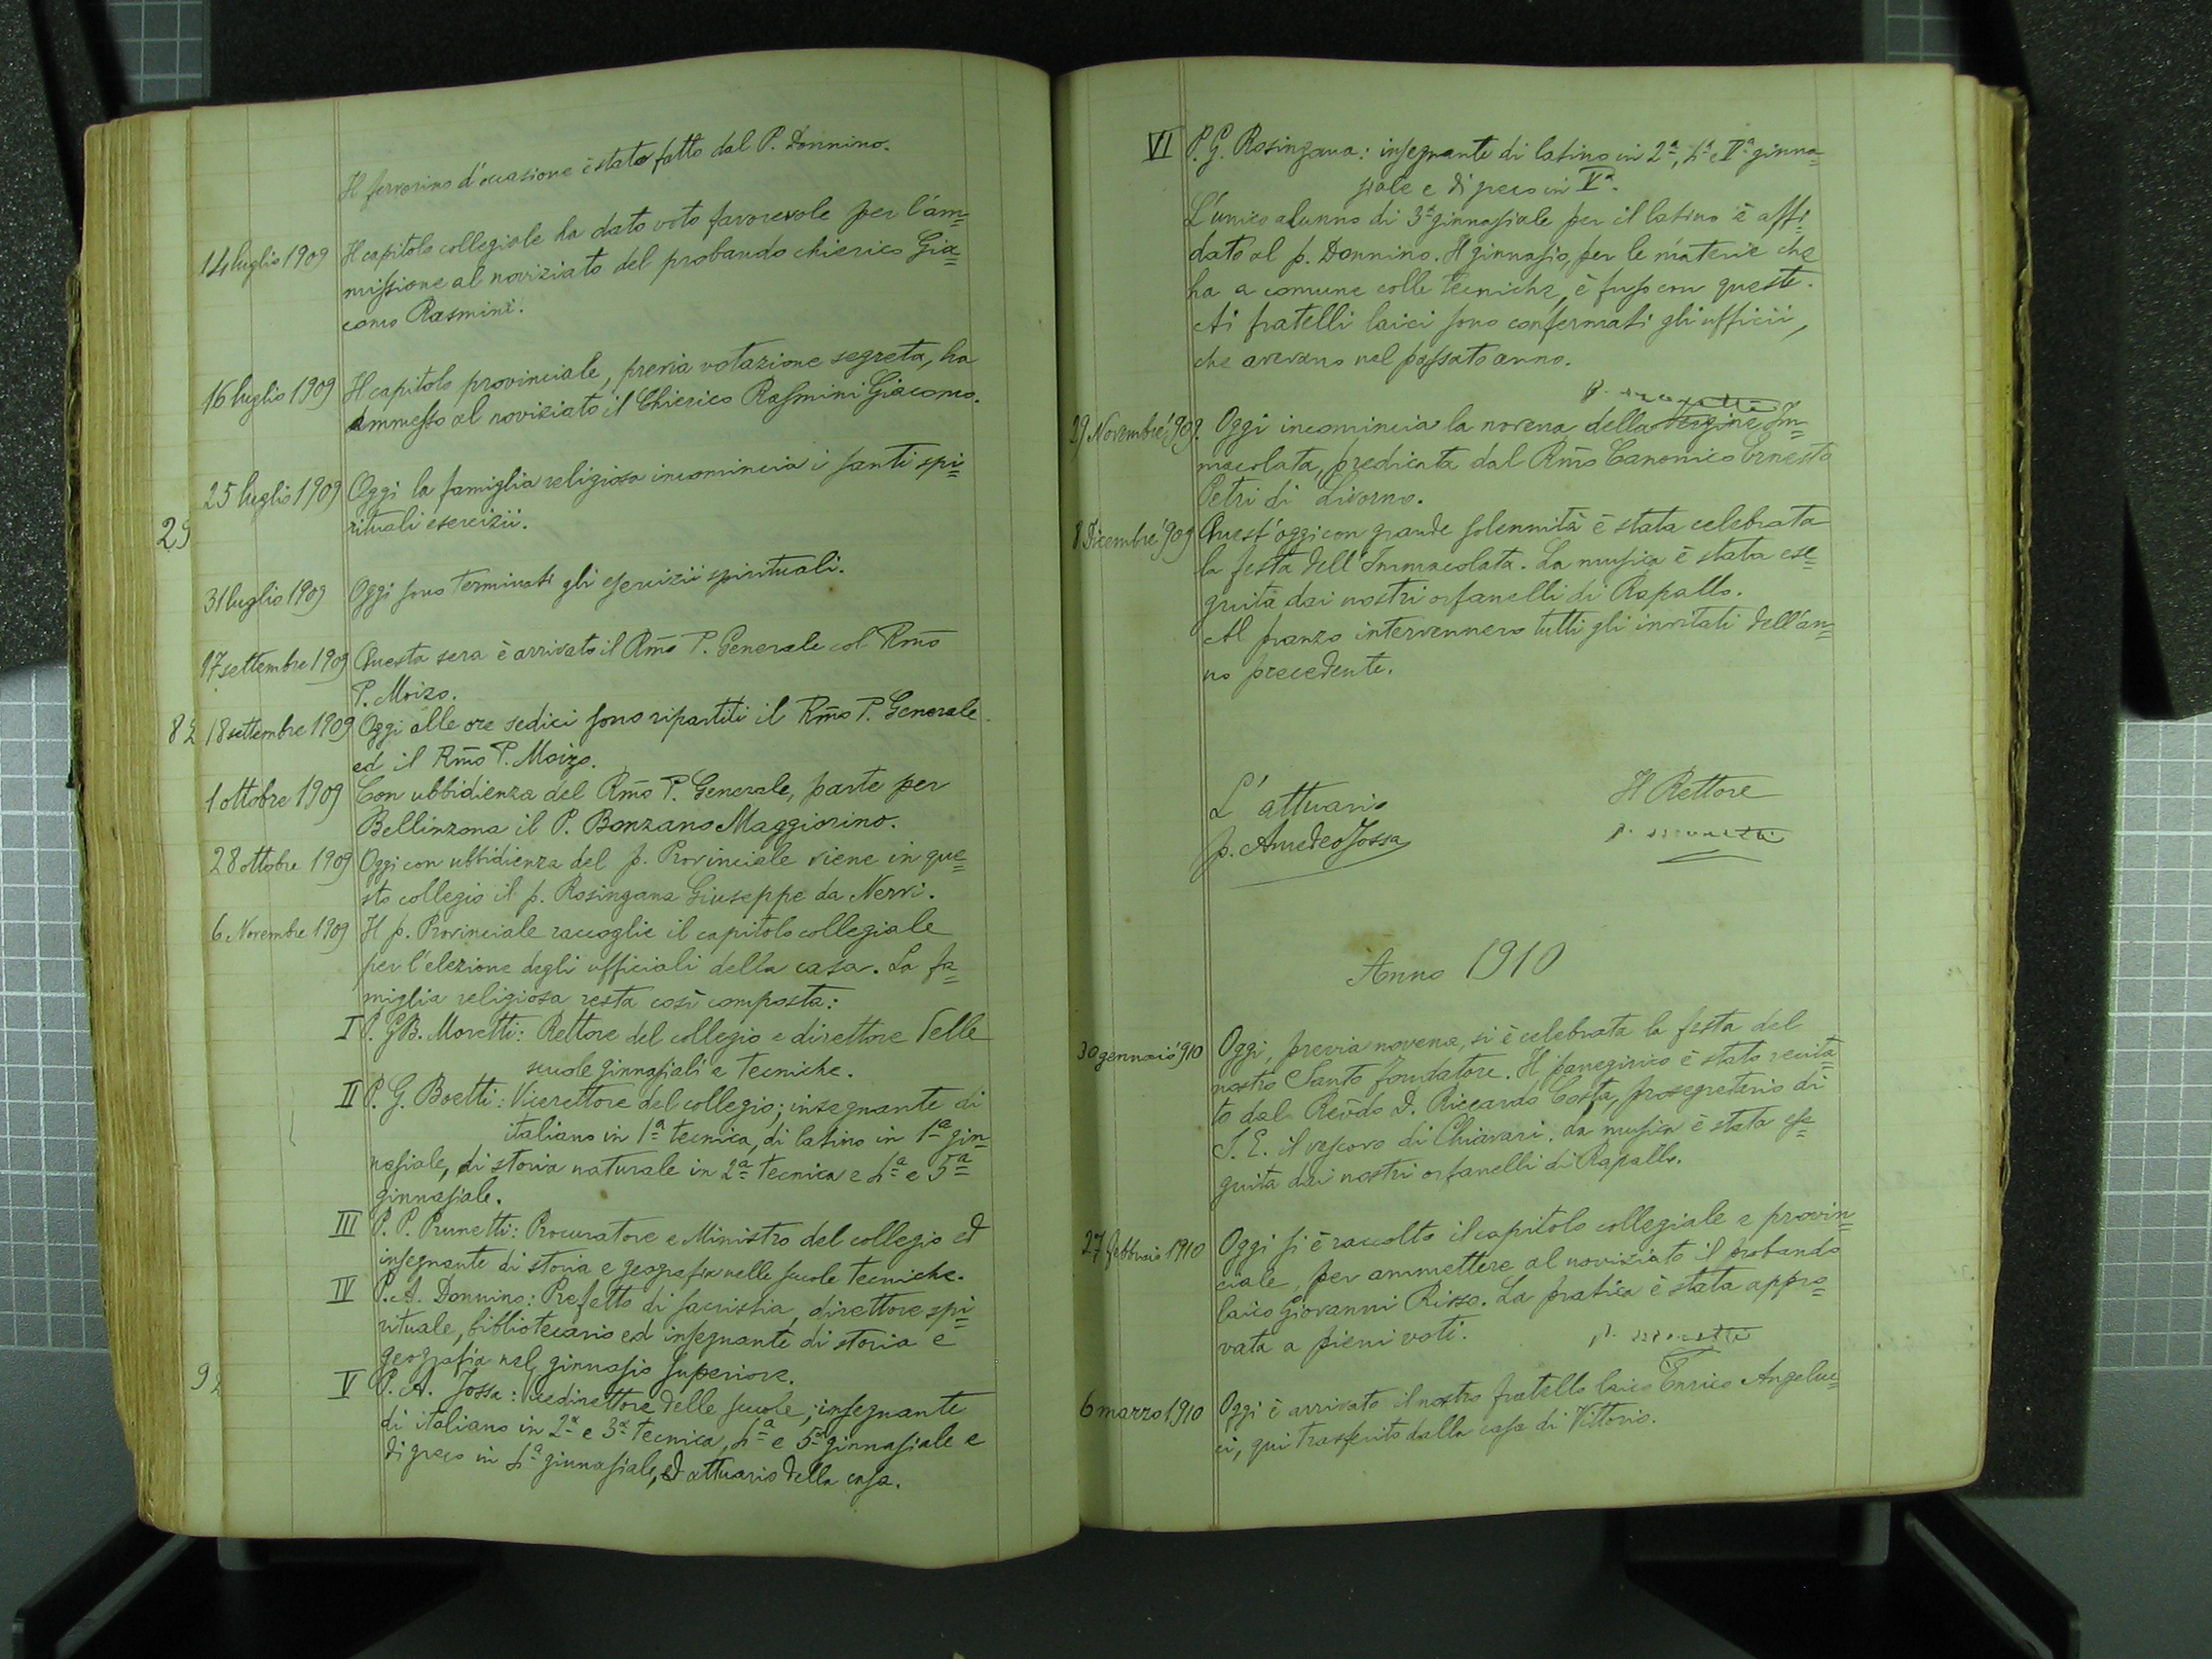 Il fervorino d'occasione è stato fatto dal P. Donnino.
14 luglio 1909 Il capitolo collegiale ha dato voto favorevole per l'am=
missione al noviziato del probando chierico Gia=
como Rasmini.
16 luglio 1909 Il capitolo provinciale, previa votazione segreta, ha
ammesso al noviziato il Chierico Rasmini Giacomo.
25 luglio 1909 Oggi la famiglia religiosa incomincia i santi spi=
rituali esercizii.
29
31 luglio 1909 Oggi sono terminati gli esercizii spirituali.
17 settembre 1909 Questa sera è arrivato il Rmo P. Generale col Rmo
P. Moizo.
8 18 settembre 1909 Oggi alle ore sedici sono ripartiti il Rmo P. Generale
ed il Rmo P. Moizo.
1 ottobre 1909 Con ubbidienza del Rmo P. Generale, parte per
Bellinzona il P. Bonzano Maggiorino.
28 ottobre 1909 Oggi con ubbidienza del p. Provinciale viene in que=
sto collegio il p. Rosingana Giuseppe da Nervi.
6 Novembre 1909 Il p. Provinciale raccoglie il capitolo collegiale
per l'elezione degli ufficiali della casa. La fa=
miglia religiosa resta così composta:
I P. GB. Moretti: Rettore del collegio e direttore delle
scuole ginnasiali e tecniche.
II P. G. Boetti: Vicerettore del collegio; insegnante di
italiano in 1ª tecnica, di latino in 1ª gin=
nasiale, di storia naturale in 2ª tecnica e 4ª e 5ª
ginnasiale.
III P. P. Prunetti: Procuratore e Ministro del collegio ed
insegnante di storia e geografia nelle scuole tecniche.
IV P. A. Donnino: Prefetto di sacristia, direttore spi=
rituale, bibliotecario ed insegnante di storia e
geografia nel ginnasio superiore.
9
V P. A. Jossa: Vicedirettore delle scuole; insegnante
di italiano in 2ª e 3ª tecnica, 4ª e 5ª ginnasiale e
di greco in 4ª ginnasiale, ed attuario della casa.
VI P. G. Rosingana: insegnante di latino in 2ª, 4ª e Vª ginna=
siale e di greco in Vª.
L'unico alunno di 3ª ginnasiale per il latino è affi=
dato al p. Donnino. Il ginnasio, per le materie che
ha a comune colle tecniche, è fuso con queste.
Ai fratelli laici sono confermati gli ufficii,
che avevano nel passato anno.
p. Moretti
29 Novembre '909. Oggi incomincia la novena della Vergine Im=
macolata, predicata dal Rmo Canonico Ernesto
Petri di Livorno.
8 Dicembre '909 Quest'oggi con grande solennità è stata celebrata
la festa dell'Immacolata. La musica è stata ese=
guita dai nostri orfanelli di Rapallo.
Al pranzo intervennero tutti gli invitati dell'an=
no precedente.
L'attuario Il Rettore
p. Amedeo Jossa p. Moretti
Anno 1910
30 gennaio '910 Oggi, previa novena, si è celebrata la festa del
nostro Santo fondatore. Il panegirico è stato recita=
to dal Revdo D. Riccardo Costa, prosegretario di
S. E. il vescovo di Chiavari. La musica è stata ese=
guita dai nostri orfanelli di Rapallo.
27 febbraio 1910 Oggi si è raccolto il capitolo collegiale e provin=
ciale, per ammettere al noviziato il probando
laico Giovanni Risso. La pratica è stata appro=
vata a pieni voti. p. Moretti
6 marzo 1910 Oggi è arrivato il nostro fratello laico Enrico Angeluc=
ci, qui trasferito dalla casa di Vittorio.